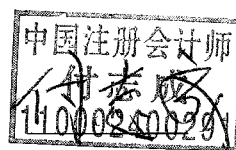 中国注册会计师
付志成
110002400291